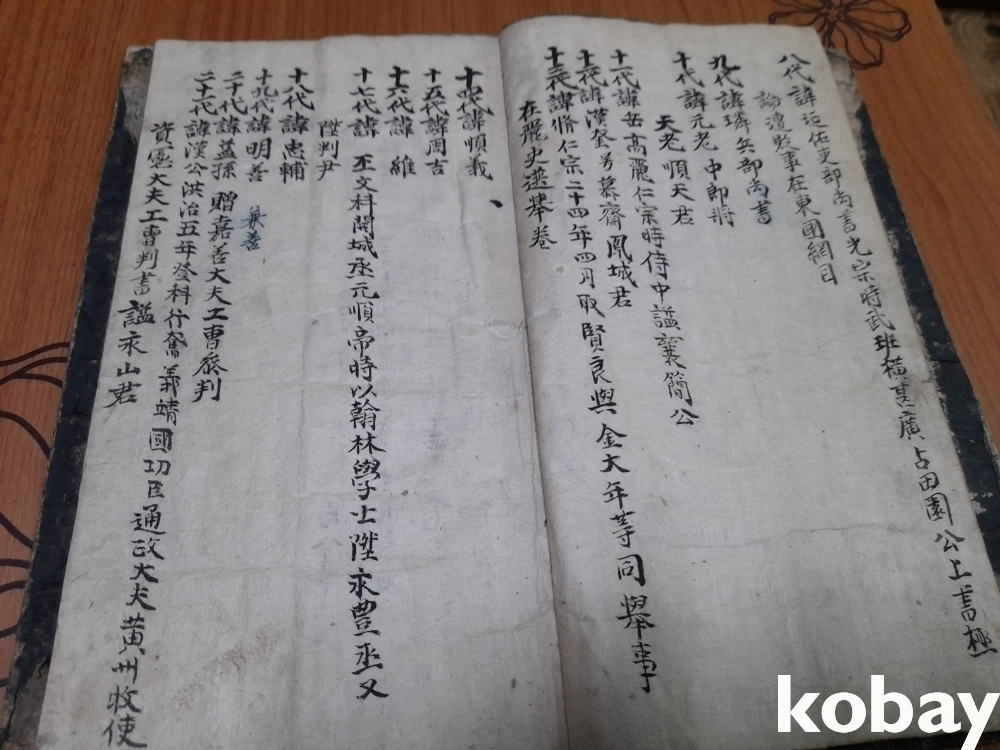 八代諱廷佑吏部尚書光宗時武班橫甚廣占田園公上書極
論遣敗事在東國綱目
九代諱璘兵部尚書
十代諱元老中郎將
天老順天君
十一代諱岳高麗仁宗時侍中諡襄簡公
十二代諱漢奎号慕齋鳳城君
十三代諱脩仁宗二十四年四月取賢良與金大年等同舉事
在麗史選舉卷
十四代諱順義
十五代諱周吉
十六代諱維
十七代諱丕文科開城丞元順帝時以翰林學士陞永豊丞又
陞判尹
十八代諱忠輔
十九代諱明善
兼善
二十代諱藎孫贈嘉善大夫工曹叅判
二十一代諱漢公洪治五年登科行奮義靖國功臣通政大夫黃州牧使
資憲大夫工曹判書諡永山君
kobay